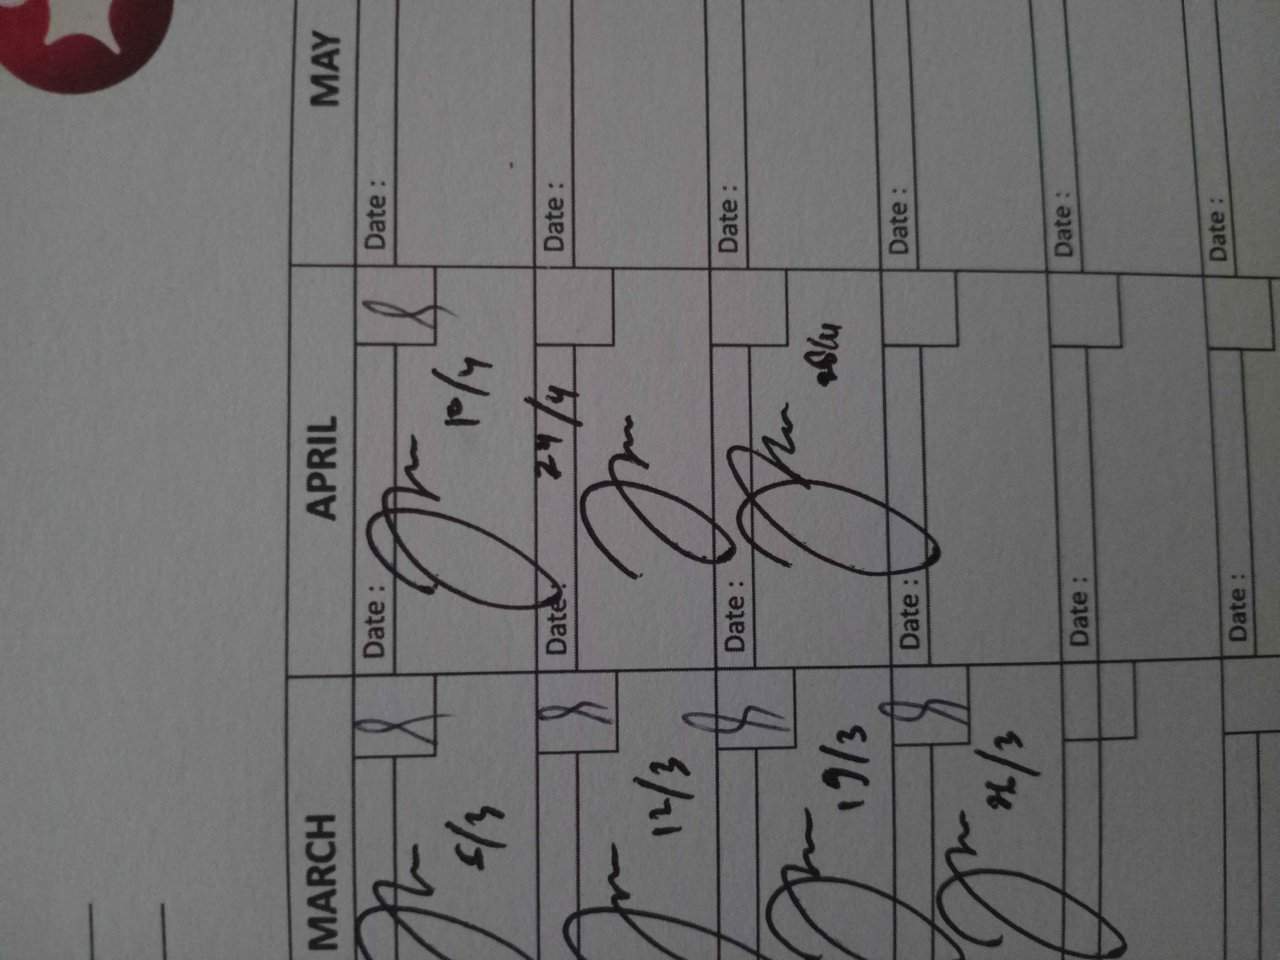 MARCH APRIL MAY
Date : Date :
5/3 10/4
Date : Date :
12/3 24/4
Date : Date :
19/3 28/4
Date : Date :
26/3
Date : Date :
Date : Date :